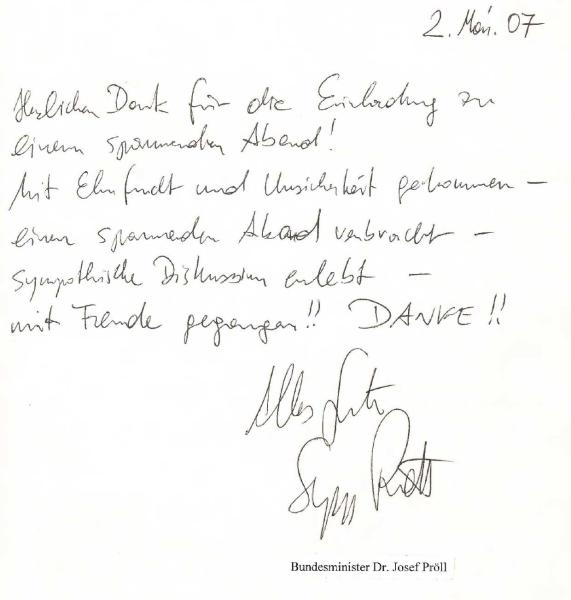 2. Mai. 07
Herzlichen Dank für die Einladung zu
einem spannenden Abend!
Mit Ehrfurcht und Unsicherheit gekommen –
einen spannenden Abend verbracht –
sympathische Diskussion erlebt –
mit Freude gegangen!! DANKE!!
Alles Gute
Sepp Pröll
Bundesminister Dr. Josef Pröll